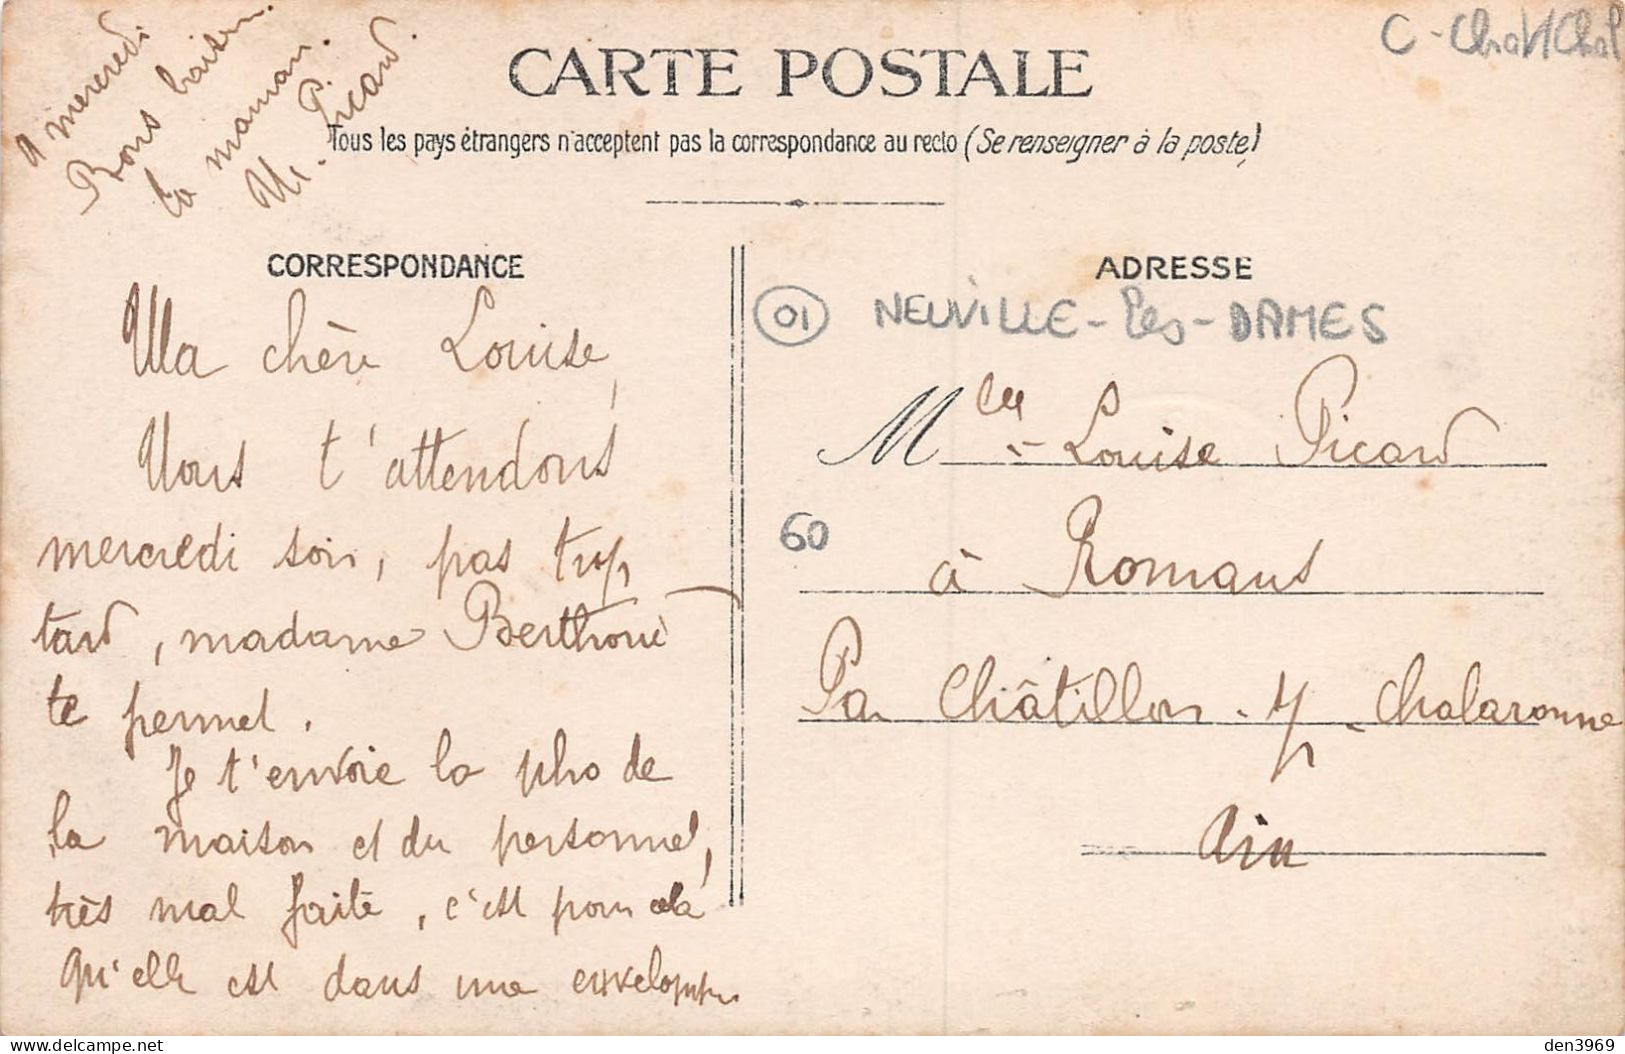 A mercredi
Bons baisers.
ta maman.
M. Picard.
C - Chat/Chal
CARTE POSTALE
Tous les pays étrangers n'acceptent pas la correspondance au recto (Se renseigner à la poste)
CORRESPONDANCE
Ma chère Louise,
Nous t'attendons
mercredi soir, pas trop
tard, madame Berthoud
te permet.
Je t'envoie la pho de
la maison et du personnel,
très mal faite, c'est pour cela
qu'elle est dans une enveloppe
ADRESSE
01 NEUVILLE-les-DAMES
Mlle Louise Picard
60
à Romans
Par Châtillon-s/-Chalaronne
Ain
delcampe.net
den3969